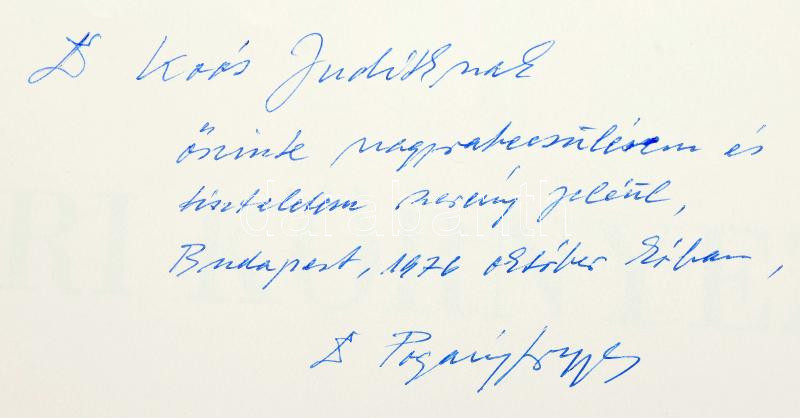 Dr Koós Juditknak
őszinte nagyrabecsülésem és
tiszteletem szerény jeléül,
Budapest, 1976 október hóban,
Dr Pogány Frigyes
darabanth